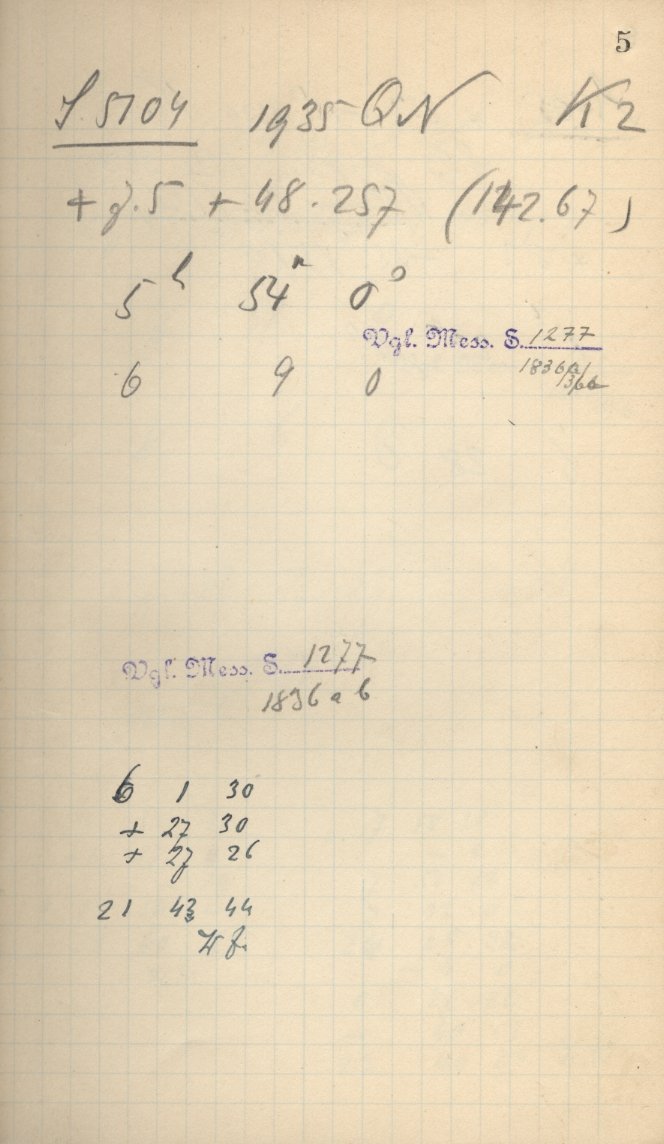 5
S 5104 1935 QN K2
+ 7.5 + 48.257 (142.67)
5h 54m 0s
Vgl. Mess. S. 1277
1836a/
6 9 0
Vgl. Mess. S. 1277
1836 a b
6 1 30
+ 27 30
+ 27 26
21 43 44